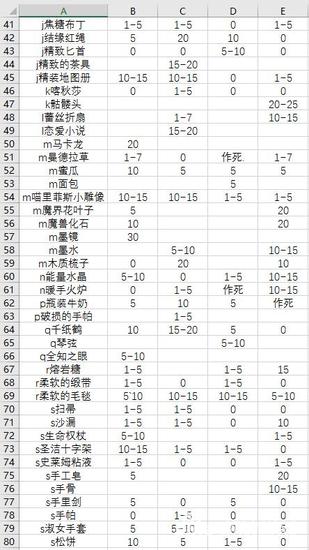 A B C D E
41 j焦糖布丁 1-5 1-5 0 1-5
42 j结缘红绳 5 20 10 0
43 j精致匕首 0 0 5-10 0
44 j精致的茶具 15-20
45 j精装地图册 10-15 10-15 0 1-5
46 k喀秋莎 0 1-5 0 0
47 k骷髅头 20-25
48 l蕾丝折扇 1-7 10-15
49 l恋爱小说 15-20
50 m马卡龙 20
51 m曼德拉草 1-7 0 作死 1-7
52 m蜜瓜 10 5 5 5
53 m面包 5
54 m喵里菲斯小雕像 10-15 10-15 1-5 1-5
55 m魔界花叶子 5 20
56 m魔兽化石 10 20
57 m墨镜 30
58 m墨水 5-10 10-15
59 m木质梳子 0 20 10
60 n能量水晶 5-10 0 1-5 10-15
61 n暖手火炉 0 1-5 作死 10-15
62 p瓶装牛奶 5 10 5 作死
63 p破损的手帕 1-5
64 q千纸鹤 10 15-20 5 0
65 q琴弦 5-10
66 q全知之眼 5-10
67 r熔岩糖 1-5 1-5 15
68 r柔软的缎带 1-5 0 1-5 0
69 r柔软的毛毯 5`10 10-15 10-15 5-10
70 s扫帚 1-5 1-5 0 0
71 s沙漏 1-5 1-5 0 10-15
72 s生命权杖 5-10 1-5
73 s圣洁十字架 10-15 1-5 1-5 0
74 s史莱姆粘液 1-5 0 0 1-5
75 s手工皂 5 20
76 s手骨 10-15
77 s手里剑 5 0 5 0
78 s手帕 0 1-5 0 0
79 s淑女手套 5 5-10 0
80 s松饼 10 5 1-5 0